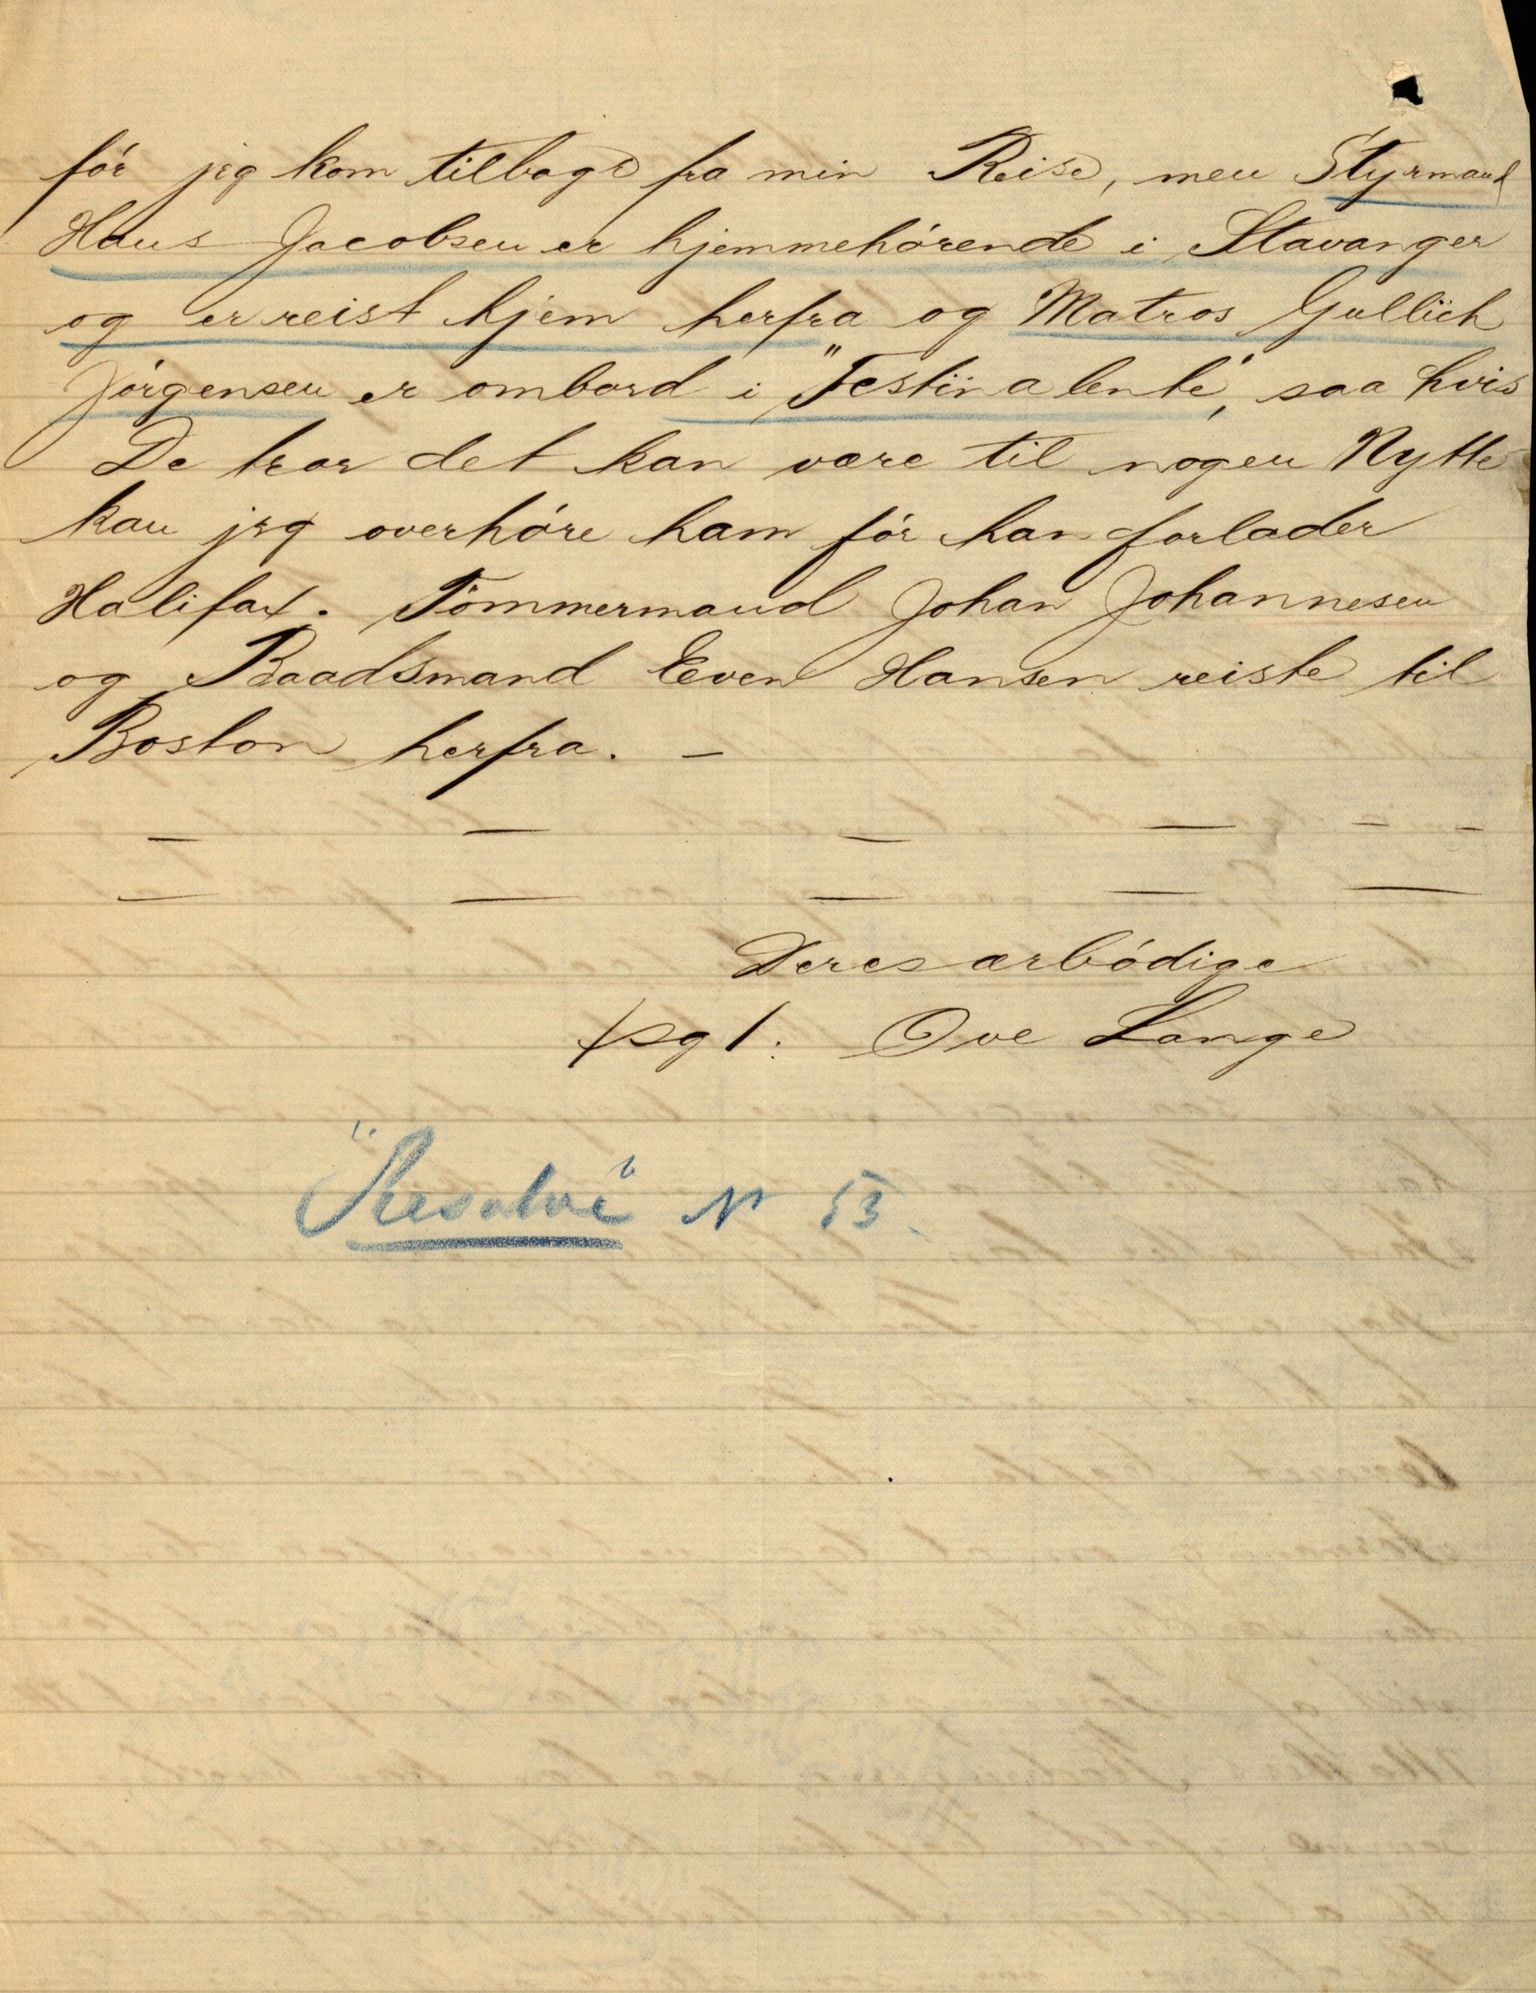 för jeg kom tilbage fra min Reise, men Styrmand
Hans Jacobsen er hjemmehörende i Stavanger
og er reist hjem herfra og Matros Gullich
Jörgensen er ombord i "Festina lente", saa hvis
De tror det kan være til nogen Nytte
kan jeg overhöre ham för han forlader
Halifax. Tömmermand Johan Johannesen
og Baadsmand Even Hansen reiste til
Boston herfra. —
— — — — — —
— — — — —
Deres ærbödige
sgt: Ove Lange
"Resolvé" N 53.